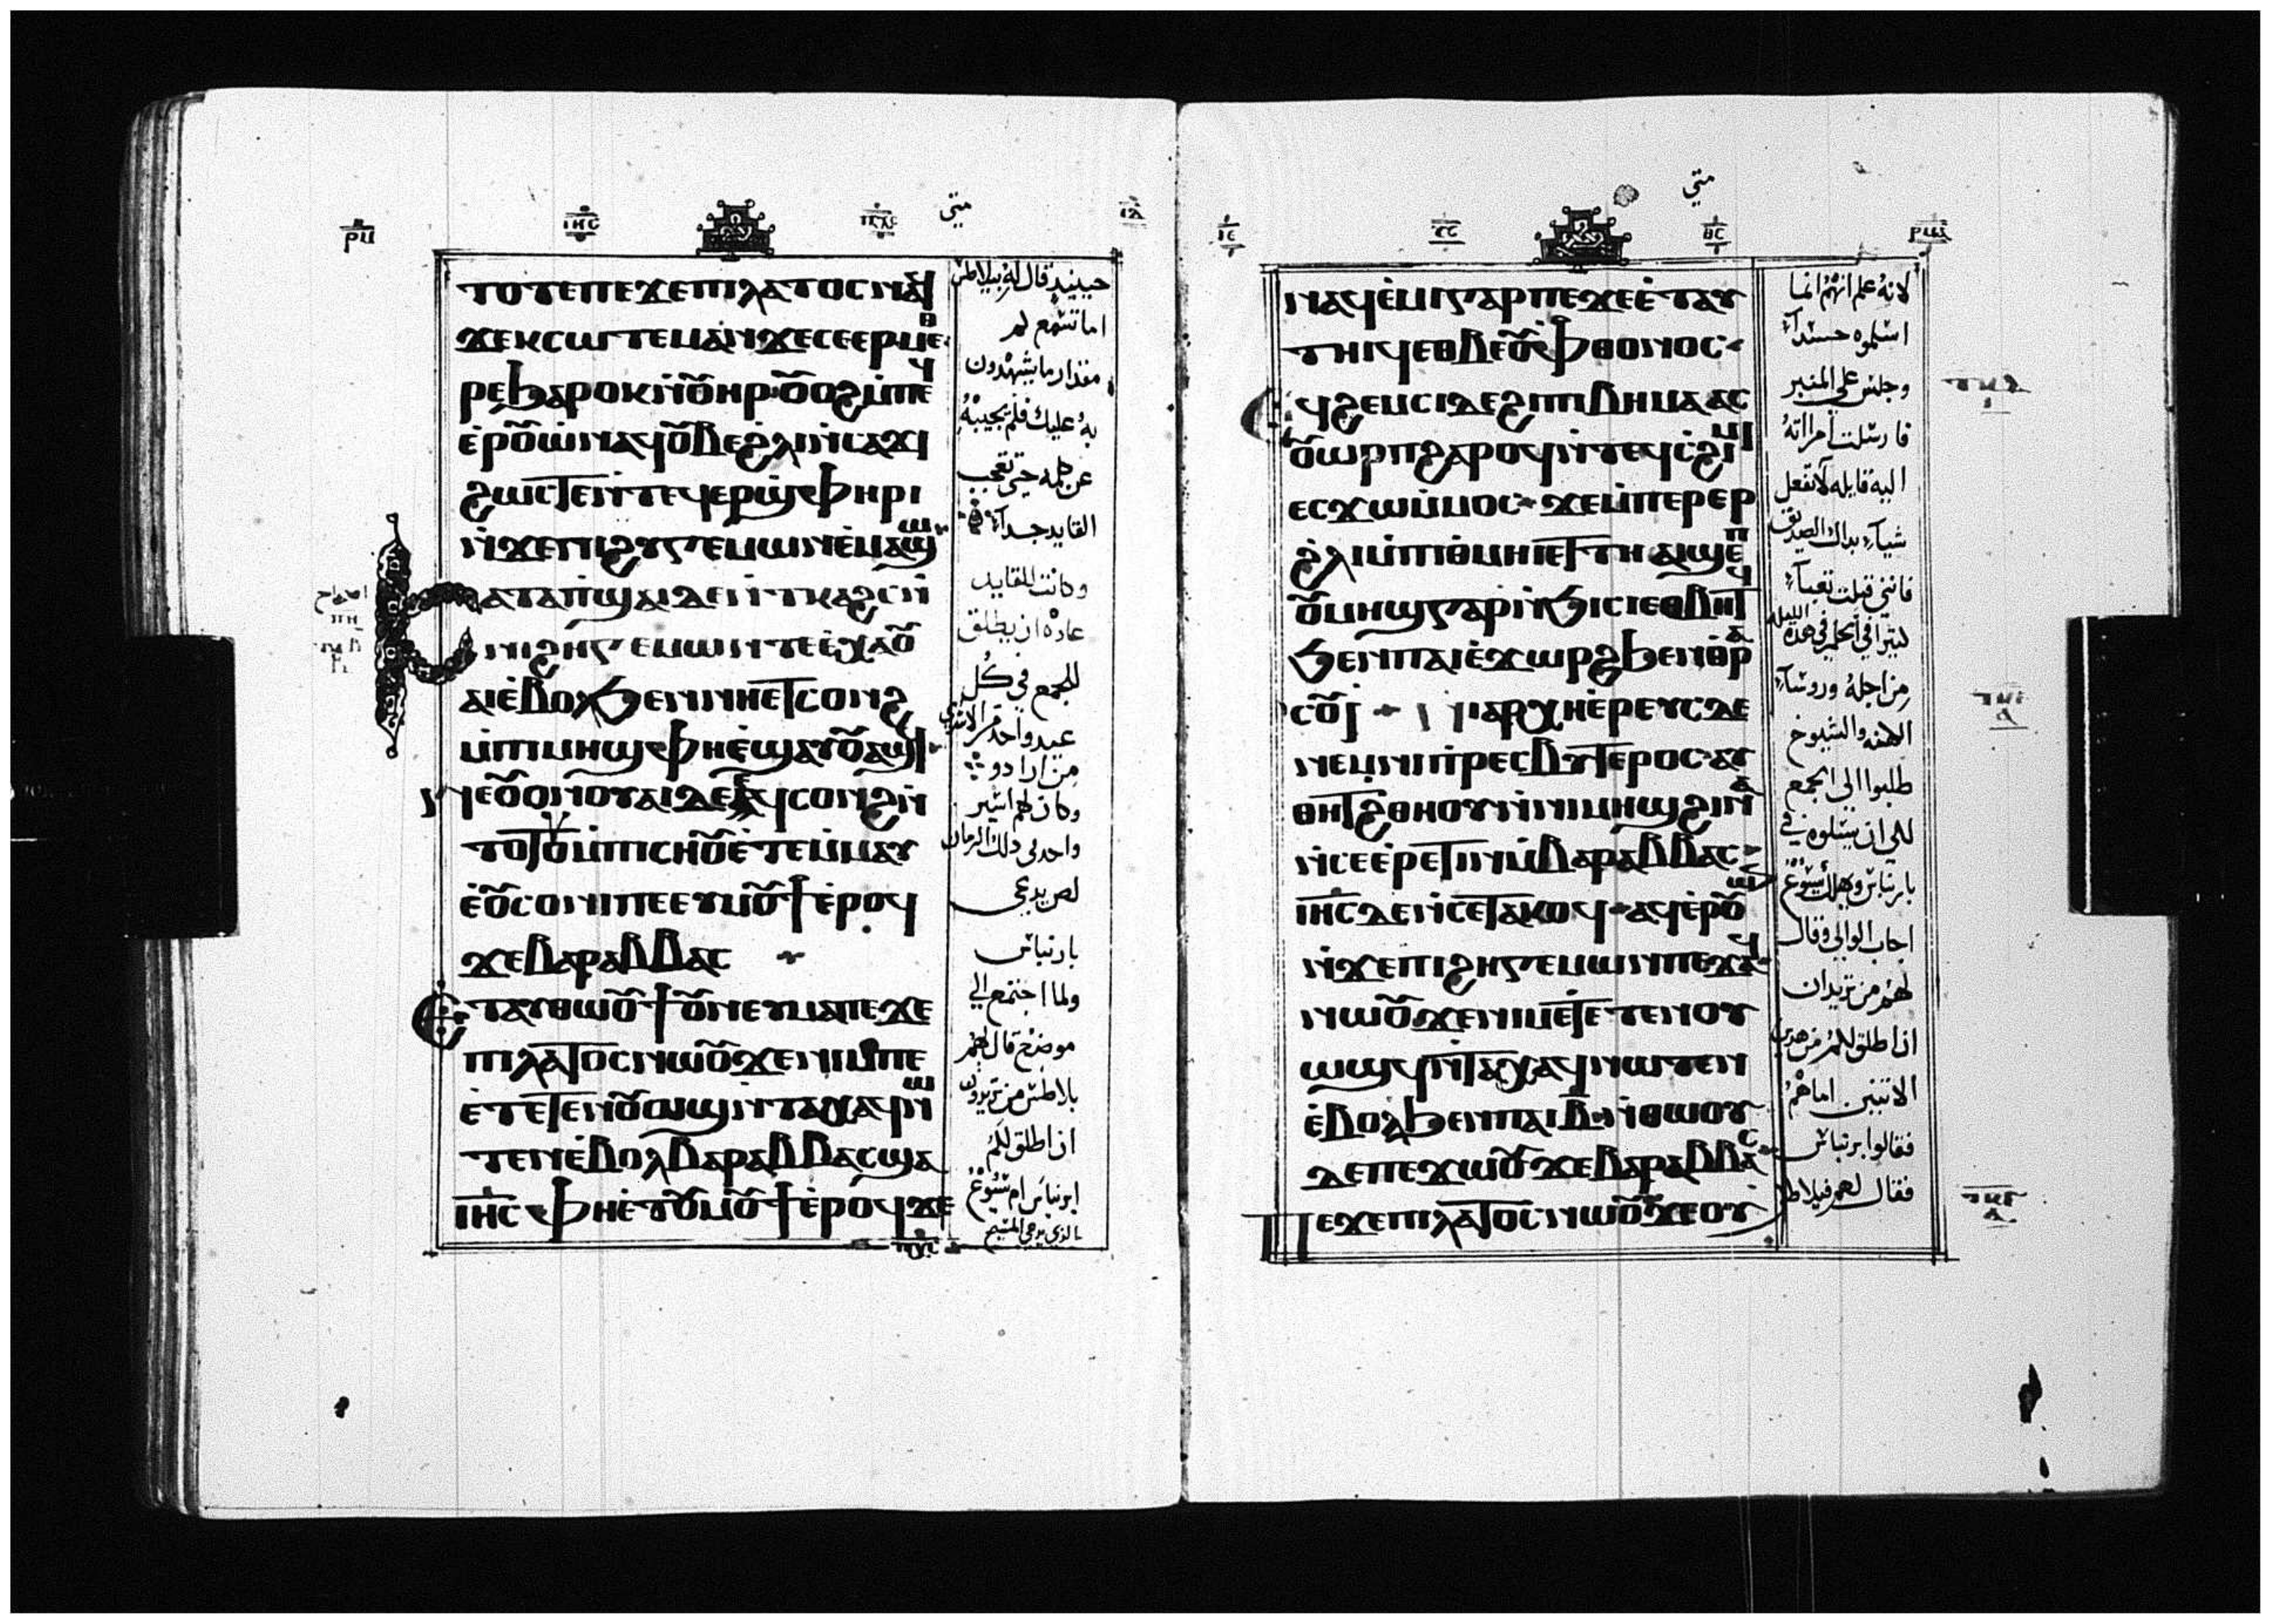 ⲣⲙ
ⲓⲏⲥ
ⲡⲭⲥ
متى
ⲧⲟⲧⲉⲡⲉϫⲉⲡⲓⲗⲁⲧⲟⲥⲛⲁϥ
ϫⲉⲕⲥⲱⲧⲉⲙⲁⲛϫⲉⲥⲉⲉⲣⲙⲉⲑ
ⲣⲉϧⲁⲣⲟⲕⲛⲟⲩⲏⲣ ⲟⲩⲟϩⲙⲡⲉϥ
ⲉⲣⲟⲩⲱⲛⲁϥⲟⲩⲃⲉϩⲗⲓⲛⲥⲁϫⲓ
ϩⲱⲥⲧⲉⲛⲧⲉϥⲉⲣϣⲫⲏⲣⲓ
ⲛϫⲉⲡⲓϩⲩⲅⲉⲙⲱⲛⲉⲙⲁϣⲱ
ⲕⲁⲧⲁⲡϣⲁⲓⲇⲉⲛⲧⲕⲁϩⲥⲛ
ⲛⲓϩⲏⲅⲉⲙⲱⲛⲧⲉⲉⲭⲁⲟⲩ
ⲁⲓⲉⲃⲟⲗϧⲉⲛⲛⲏⲉⲧⲥⲟⲛϩ
ⲙⲡⲓⲙⲏϣⲫⲏⲉϣⲁⲩⲟⲩⲁϣϥ
ⲛⲉⲟⲩⲟⲛⲟⲩⲁⲓⲇⲉⲉϥⲥⲟⲛϩⲛ
ⲧⲟⲧⲟⲩⲙⲡⲓⲥⲏⲟⲩⲉⲧⲉⲙⲙⲁⲩ
ⲉⲟⲩⲥⲟⲛⲓⲡⲉⲉⲩⲙⲟⲩϯⲉⲣⲟϥ
ϫⲉⲃⲁⲣⲁⲃⲃⲁⲥ
ⲉⲧⲁⲩⲑⲱⲟⲩϯⲟⲩⲛⲉⲩⲙⲁⲡⲉϫⲉ
ⲡⲓⲗⲁⲧⲟⲥⲛⲱⲟⲩϫⲉⲛⲓⲙⲡⲉ
ⲉⲧⲉⲧⲉⲛⲟⲩⲱϣⲛⲧⲁⲭⲁϥⲛⲱ
ⲧⲉⲛⲉⲃⲟⲗⲃⲁⲣⲁⲃⲃⲁⲥϣⲁ
ⲓⲏⲥⲫⲏⲉⲧⲟⲩⲙⲟⲩϯⲉⲣⲟϥϫⲉ
ⲡⲭⲥ
حينيذ قال له بيلاطس
اما تسمع لهم
مقدار ما يشهدون
به عليك فلم يجيبه
عن كلمه حتى تعجب
القايد جدآ
وكانت للقايد
عاده ان يطلق
للجمع في كل
عيد واحد من الاسرى
من ارادو
وكان لهم اسير
واحد في ذلك الزمان
لص يدعى
بارنباس
ولما اجتمع الي
موضع قال لهم
بلاطس من تريدون
ان اطلق لكم
ابرنباس ام يسوع
الذي يدعى المسيح
اصحاح
ⲡⲏ
متي
ⲣⲙⲁ
ⲛⲁϥⲉⲙⲓⲅⲁⲣⲡⲉϫⲉⲉⲧⲁⲩ
ⲧⲏⲓϥⲉⲑⲃⲉⲟⲩⲫⲑⲟⲛⲟⲥ
ⲉϥϩⲉⲙⲥⲓⲇⲉϩⲓⲡⲓⲃⲏⲙⲁⲁⲥ
ⲟⲩⲱⲣⲡϩⲁⲣⲟϥⲛⲧⲉϥⲥϩⲓⲙⲓ
ⲉⲥϫⲱⲙⲙⲟⲥ ϫⲉⲙⲡⲉⲣⲉⲣ
ϩⲗⲓⲙⲡⲓⲑⲙⲏⲓⲉⲧⲧⲏ ⲁⲓϣⲉⲡ
ⲟⲩⲙⲏϣⲅⲁⲣⲛϧⲓⲥⲓⲉⲑⲃⲏⲧϥ
ϧⲉⲛⲡⲁⲓⲉϫⲱⲣϩϧⲉⲛⲟⲩⲣⲁ
ⲥⲟⲩⲓ ⲛⲓⲁⲣⲭⲏⲉⲣⲉⲩⲥⲇⲉ
ⲛⲉⲙⲛⲓⲡⲣⲉⲥⲃⲩⲧⲉⲣⲟⲥ ⲁⲩ
ⲑⲏⲧϩⲑⲏⲟⲩⲛⲛⲓⲙⲏϣϩⲓⲛⲁ
ⲛⲥⲉⲉⲣⲉⲧⲓⲛⲙⲃⲁⲣⲁⲃⲃⲁⲥ
ⲓⲏⲥⲇⲉⲛⲥⲉⲧⲁⲕⲟϥ ⲁϥⲉⲣⲟⲩⲱ
ⲛϫⲉⲡⲓϩⲏⲅⲉⲙⲱⲛⲡⲉϫⲁϥ
ⲛⲱⲟⲩϫⲉⲛⲓⲙⲉⲧⲉⲧⲉⲛⲟⲩ
ⲱϣϥⲛⲧⲁⲭⲁϥⲛⲱⲧⲉⲛ
ⲉⲃⲟⲗϧⲉⲛⲡⲁⲓⲃ ⲛⲑⲱⲟⲩ
ⲇⲉⲡⲉϫⲱⲟⲩϫⲉⲃⲁⲣⲁⲃⲃⲁⲥ
ⲡⲉϫⲉⲡⲓⲗⲁⲧⲟⲥⲛⲱⲟⲩϫⲉⲟⲩ
لانه علم انهم انما
اسلموه حسدآ
وجلس على المنبر
فارسلت امراته
اليه قايله لا تفعل
شيآ بذاك الصديق
فانني قبلت تعبآ
كثيرا في الحلم في هذه الليله
من اجله وروسآ
الكهنه والشيوخ
طلبوا الى الجمع
لكي ان يسلوه في
بارنباس ويهلك يسوع
اجاب الوالي وقال
لهم من تريدان
ان اطلق لكم من هذين
الاثنين اما هم
فقالوا برنباس
فقال لهم فيلاطس